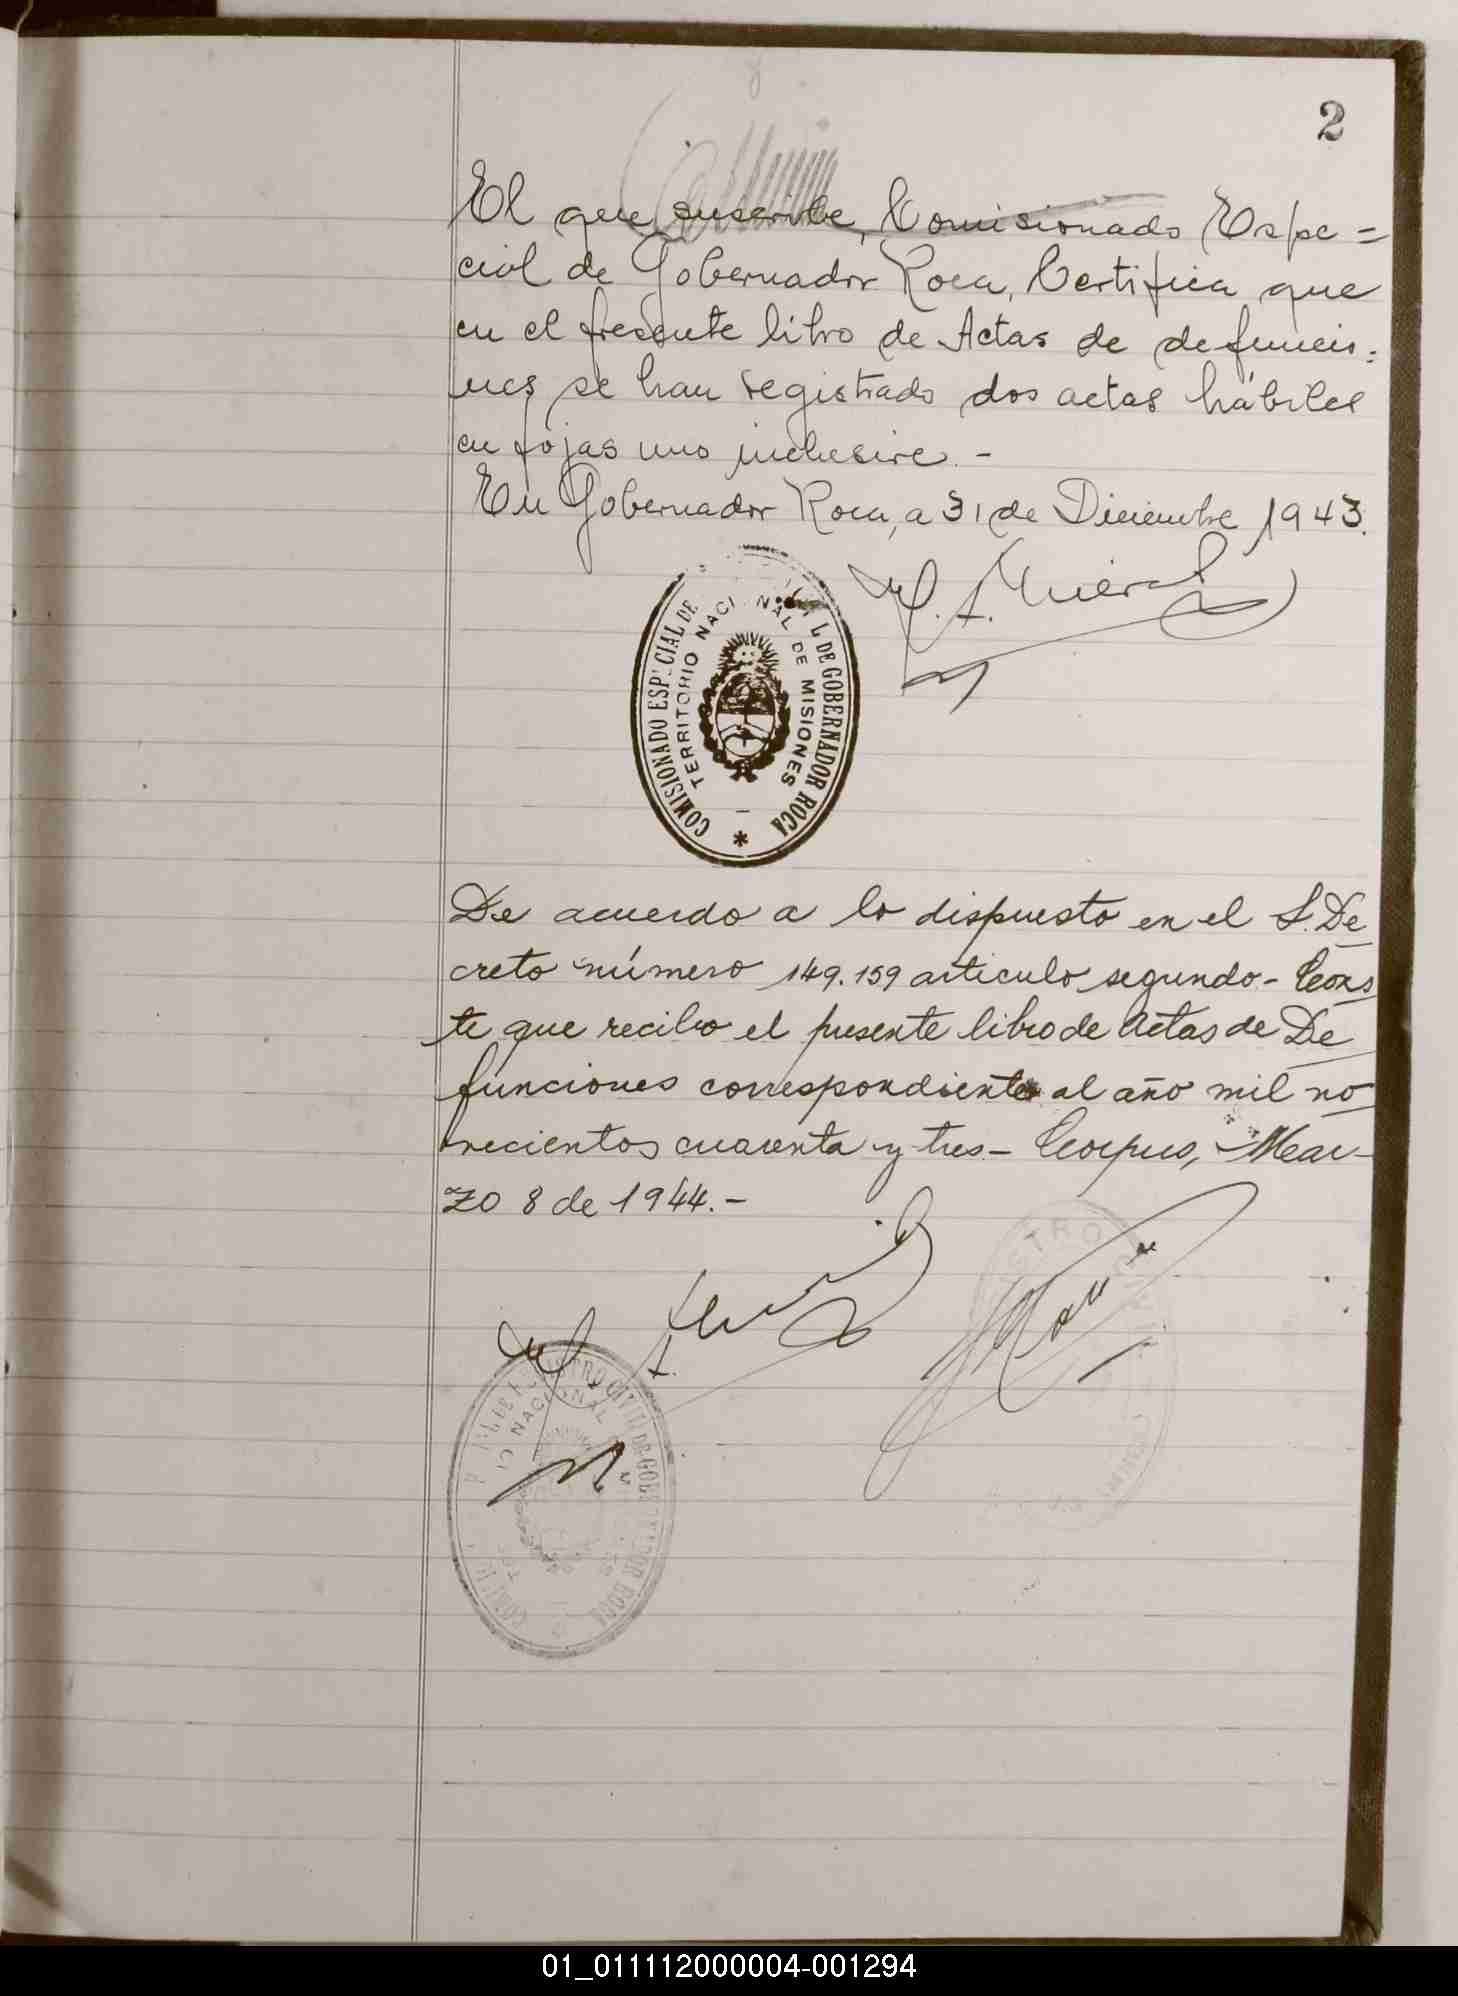 2
El que suscribe, Comisionado Espe=
cial de Gobernador Roca, Certifica que
en el presente libro de Actas de defuncio=
nes se han registrado dos actas hábiles
en fojas uno inclusive.-
En Gobernador Roca, a 31 de Diciembre 1943.
COMISIONADO ESPECIAL DE L DE GOBERNADOR ROCA
TERRITORIO NACIONAL DE MISIONES
De acuerdo a lo dispuesto en el S. De
creto número 149.159 articulo segundo- Cons
te que recibo el presente libro de Actas de De
funciones correspondiente al año mil no
vecientos cuarenta y tres- Corpus, Mar-
zo 8 de 1944.-
REGISTRO CIVIL DE GOBERNADOR ROCA
NACIONAL
01_011112000004-001294